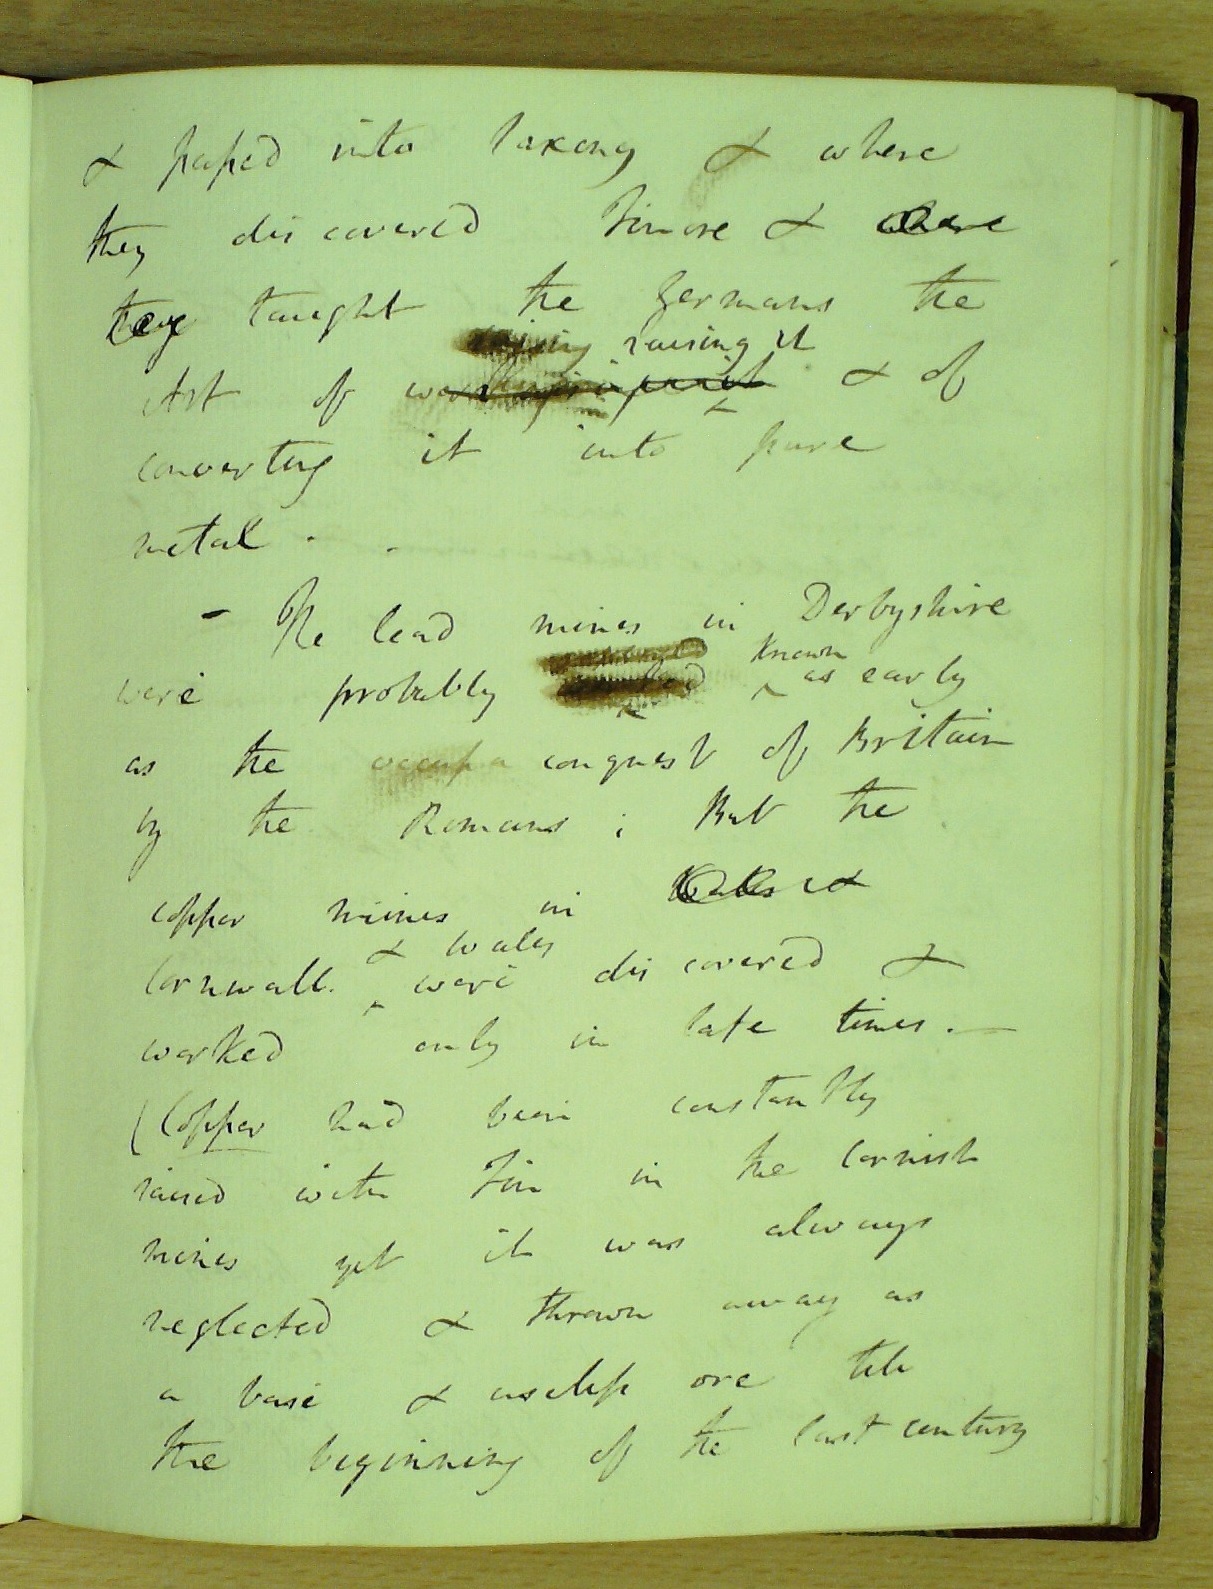 & passed into Saxony & where
they discovered Tin ore & where
they taught the Germans the
raising it
Art of working & of
converting it into pure
metal. -
- The lead mines in Derbyshire
known
were probably worked as early
as the occupa conquest of Britain
by the Romans; But the
copper mines in Wales &
& Wales
Cornwall. were discovered &
worked only in late times. —
(Copper had been constantly
raised with Tin in the Cornish
mines yet it was always
neglected & thrown away as
a base & useless ore till
the beginning of the last century